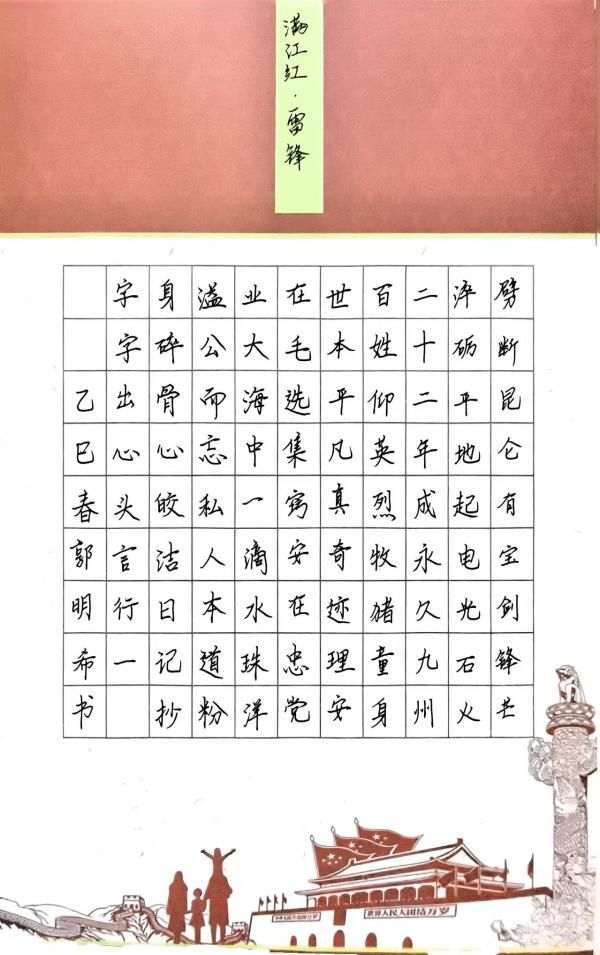 满江红·雷锋
劈断昆仑有宝剑锋芒
淬砺平地起电光石火
二十二年成永久九州
百姓仰英烈牧猪童身
世本平凡真奇迹理安
在毛选集窍安在忠党
业大海中一滴水珠洋
溢公而忘私人本道粉
身碎骨心皎洁日记抄
字字出心头言行一
乙巳春郭明希书
中华人民共和国万岁
世界人民大团结万岁